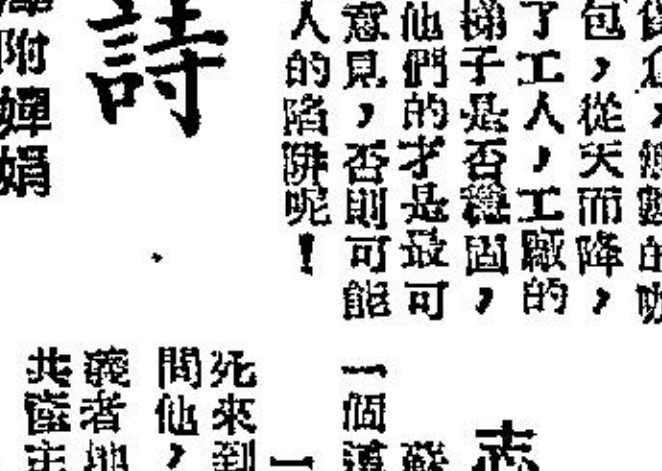 包，從天而降，
了工人，工廠的
梯子是否穩固，
他們的才是最可
意見，否則可能
人的陷阱呢！
詩
附嬋娟
志
蘇
一個
一
死來到
問他，
義者地
共產主